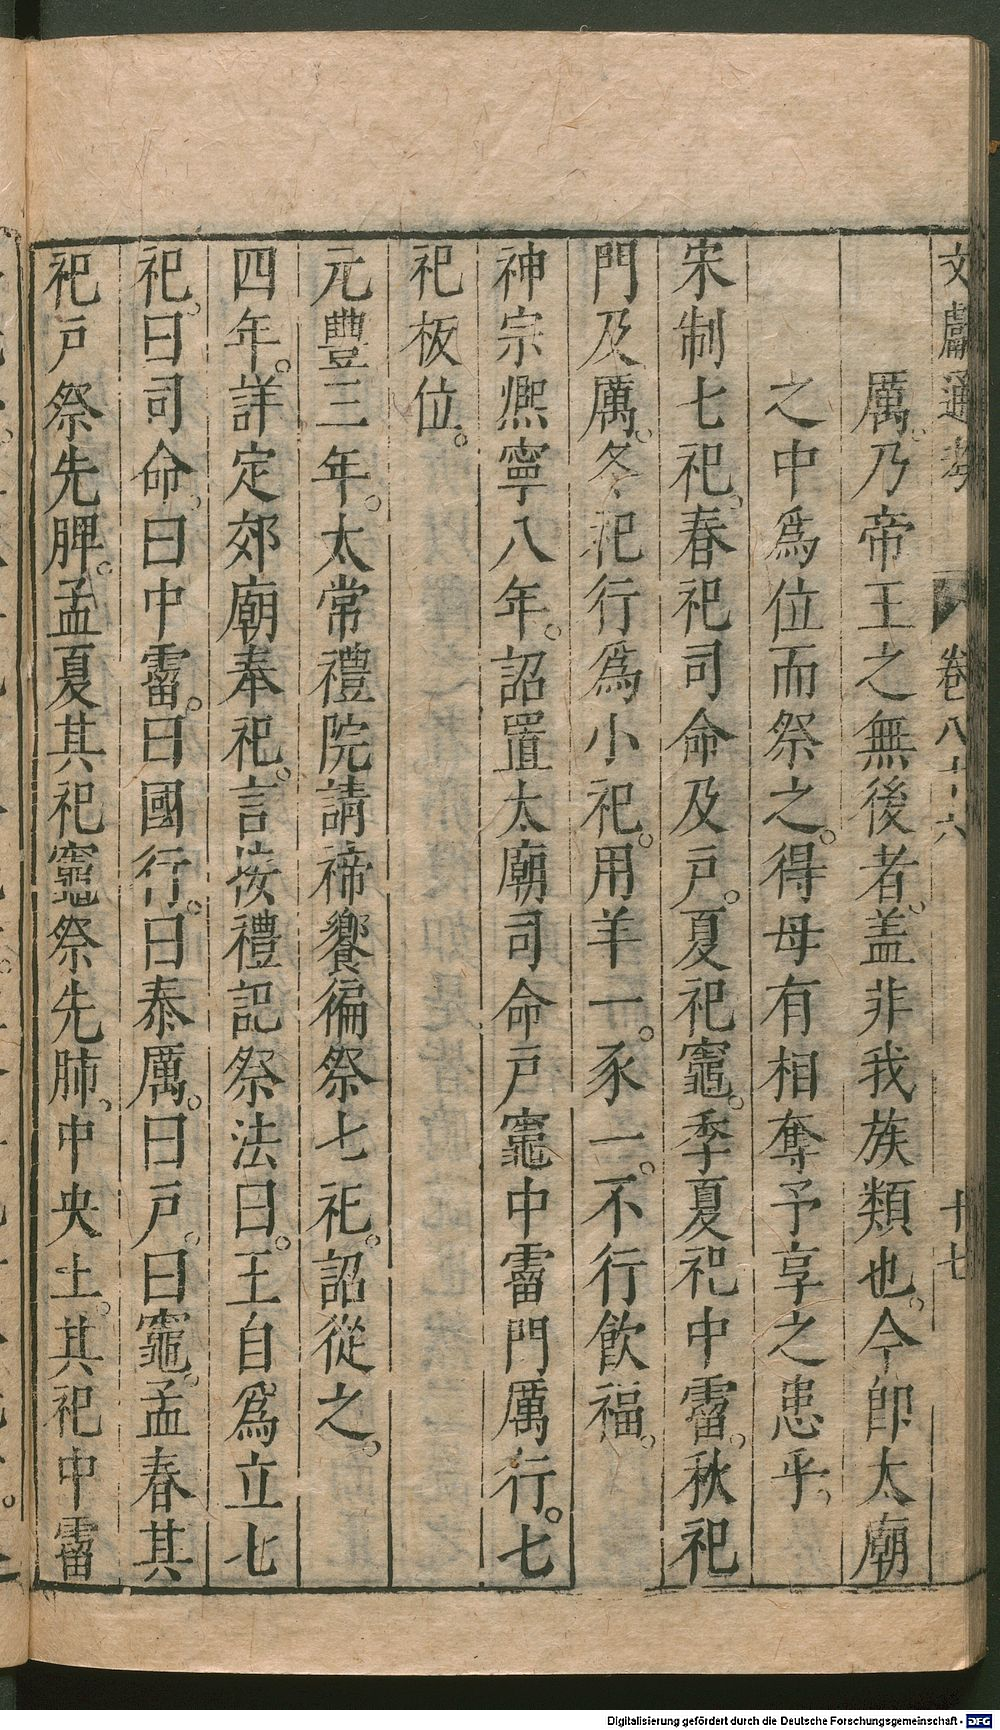 文獻通考 卷八十六 十七
厲乃帝王之無後者。盖非我族類也。今卽太廟
之中爲位而祭之。得母有相奪予享之患乎。
宋制七祀。春祀司命及戸。夏祀竈。季夏祀中霤。秋祀
門及厲。冬祀行爲小祀。用羊一。豕一。不行飲福。
神宗熈寧八年。詔置太廟司命戸竈中霤門厲行。七
祀板位。
元豐三年。太常禮院請禘饗徧祭七祀。詔從之。
四年。詳定郊廟奉祀。言按禮記祭法曰。王自爲立七
祀。曰司命。曰中霤。曰國行。曰泰厲。曰戸。曰竈。孟春其
祀戸祭先脾。孟夏其祀竈祭先肺。中央土。其祀中霤
Digitalisierung gefördert durch die Deutsche Forschungsgemeinschaft - DFG